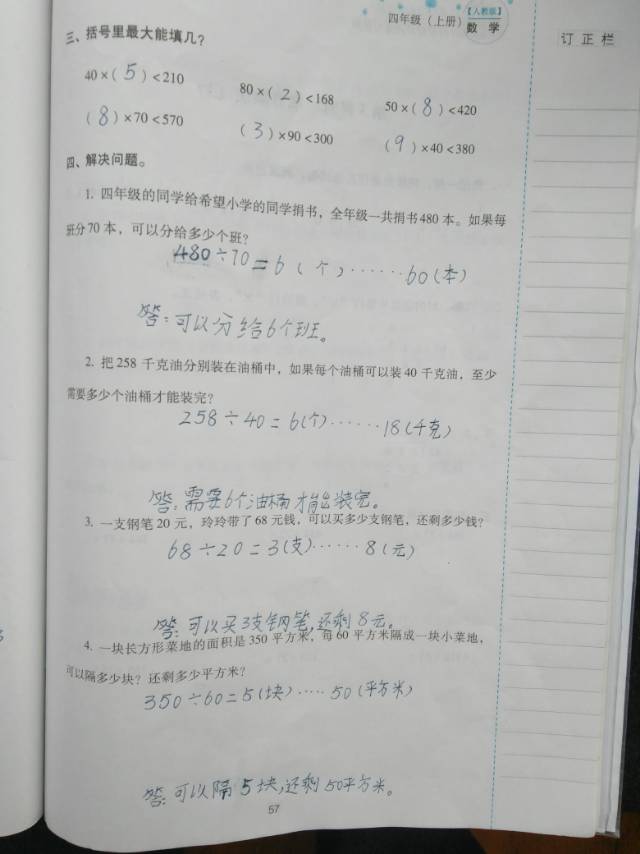 四年级（上册）
【人教版】
数 学
订 正 栏
三、括号里最大能填几？
40×( 5 )<210
80×( 2 )<168
50×( 8 )<420
( 8 )×70<570
( 3 )×90<300
( 9 )×40<380
四、解决问题。
1. 四年级的同学给希望小学的同学捐书，全年级一共捐书480 本。如果每
班分70 本，可以分给多少个班？
480÷70=6(个)……60(本)
答：可以分给6个班。
2. 把 258 千克油分别装在油桶中，如果每个油桶可以装 40 千克油，至少
需要多少个油桶才能装完？
258÷40=6(个)……18(千克)
答：需要6个油桶才能装完。
3. 一支钢笔 20 元，玲玲带了 68 元钱，可以买多少支钢笔，还剩多少钱？
68÷20=3(支)……8(元)
答：可以买3支钢笔，还剩8元。
4. 一块长方形菜地的面积是 350 平方米，每 60 平方米隔成一块小菜地，
可以隔多少块？还剩多少平方米？
350÷60=5(块)……50(平方米)
答：可以隔5块，还剩50平方米。
57